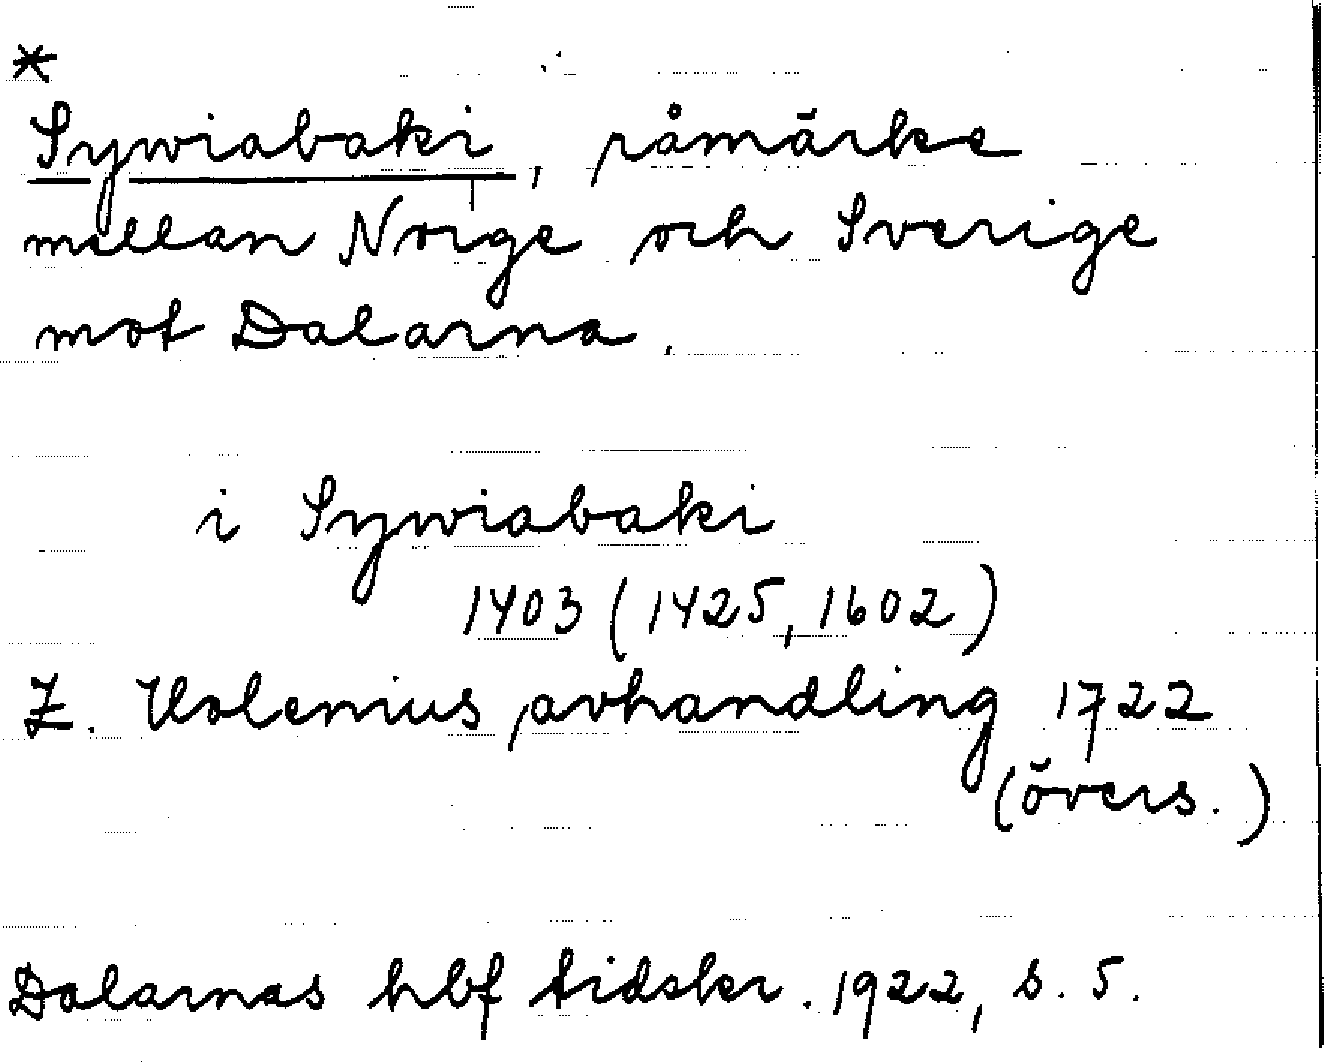 *
Sywiabaki, råmärke
mellan Norge och Sverige
mot Dalarna.
i Sywiabaki
1403 (1425, 1602)
Z. Holenius, avhandling 1722
(övers.)
Dalarnas hbf tidskr. 1922, s. 5.